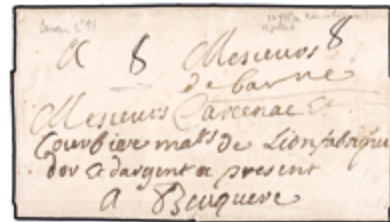 A 8 Messieurs 8
de barne
Messieurs Carcenac &
Courbiere mats de Lion fabrique
dor & dargent a present
a Beuquere